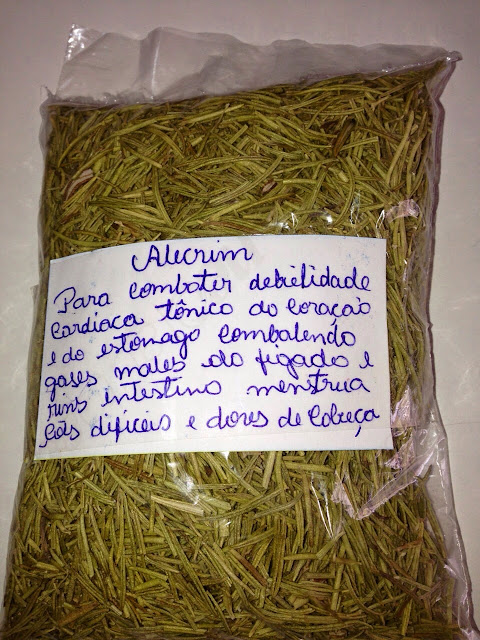 Alecrim
Para combater debilidade
cardiaca tônico do coração
e do estomago combatendo
gases males do figado e
rins intestino menstrua
ções dificeis e dores de cabeça